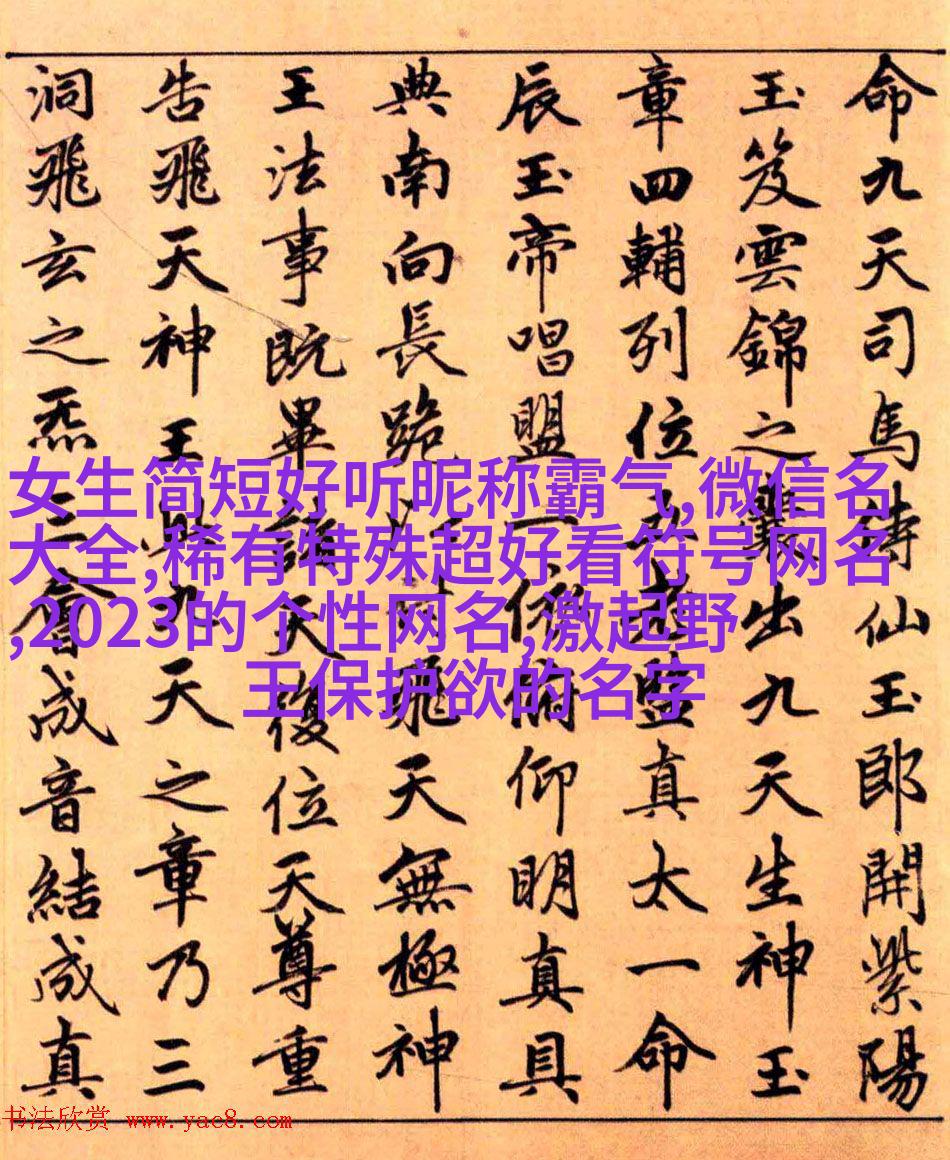 命九天司馬侍仙玉郎開紫陽
玉笈雲錦之囊出九天生神玉
章四輔列位
真太一命
辰玉帝唱盟
仰明真具
典南向長跪
飛天無極神
王法事既畢
天復位天尊重
告飛天神王
九天之章乃三
洞飛玄之炁三會成音結成真
女生简短好听昵称霸气,微信名
大全,稀有特殊超好看符号网名
,2023的个性网名,激起野
王保护欲的名字
书法欣赏 www.yac8.com